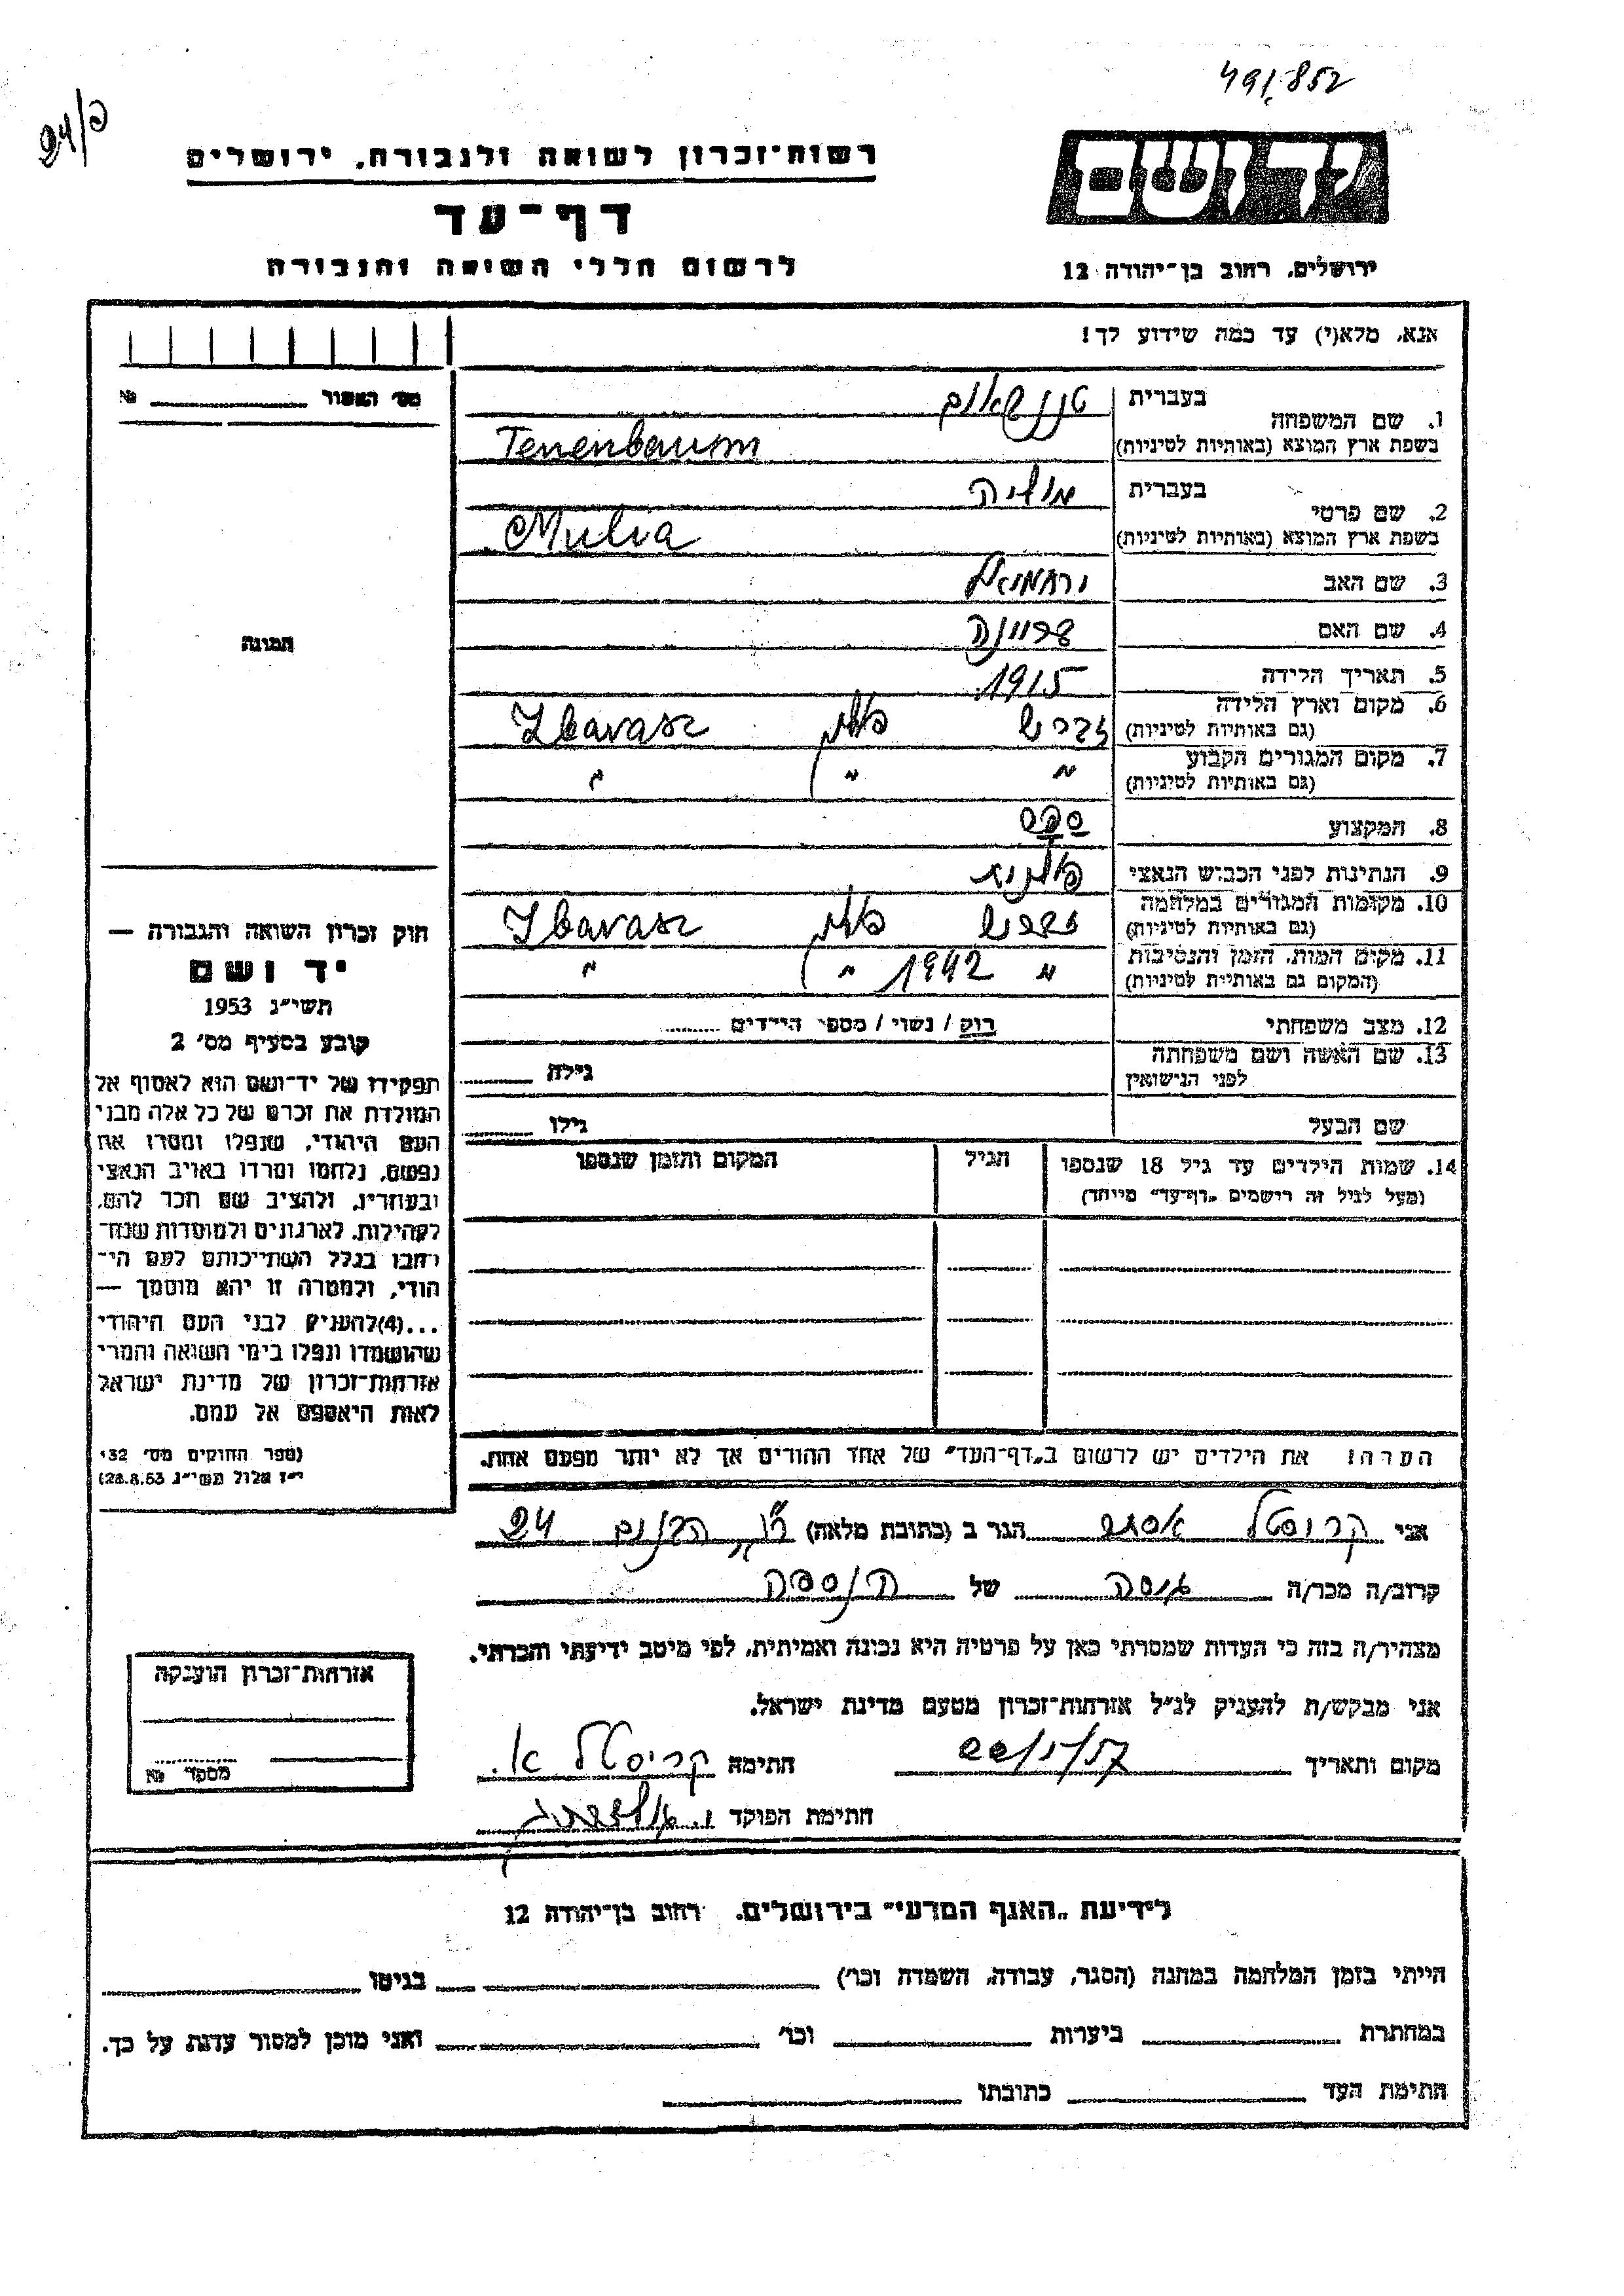 491,852
רשות־זכרון לשואה ולגבורה, ירושלים
דף־עד
לרשום חללי השואה והגבורה
ירושלים, רחוב בן־יהודה 12
אנא, מלא(י) עד כמה שידוע לך!
מס׳ האשור № 
1. שם המשפחה
בעברית טננבאום
בשפת ארץ המוצא (באותיות לטיניות) Tenenbaum
2. שם פרטי
בעברית מוליה
בשפת ארץ המוצא (באותיות לטיניות) Mulia
3. שם האב ירחמיאל
4. שם האם
5. תאריך הלידה 1915
6. מקום וארץ הלידה
(גם באותיות לטיניות) זברש פולין Zbarasz
7. מקום המגורים הקבוע
(גם באותיות לטיניות) " " "
8. המקצוע ספר
9. הנתינות לפני הכבוש הנאצי פולנית
10. מקומות המגורים במלחמה
(גם באותיות לטיניות) זברש פולין Zbarasz
11. מקום המות, הזמן והנסיבות
(המקום גם באותיות לטיניות) " 1942 " "
12. מצב משפחתי רוק / נשוי / מספר הילדים
13. שם האשה ושם משפחתה
לפני הנישואין גילה
שם הבעל גילו
14. שמות הילדים עד גיל 18 שנספו
(מעל לגיל זה רישמים „דף־עד״ מיוחד)
הגיל
המקום והזמן שנספו
הערה! את הילדים יש לרשום ב„דף־העד״ של אחד ההורים אך לא יותר מפעם אחת.
התמונה
חוק זכרון השואה והגבורה —
יד ושם
תשי״ג 1953
קובע בסעיף מס׳ 2
תפקידו של יד־ושם הוא לאסוף אל
המולדת את זכרם של כל אלה מבני
העם היהודי, שנפלו ומסרו את
נפשם, נלחמו ומרדו באויב הנאצי
ובעוזריו, ולהציב שם וזכר להם,
לקהילות, לארגונים ולמוסדות שנח־
רבו בגלל השתייכותם לעם הי־
הודי, ולמטרה זו יהא מוסמך —
...(4) להעניק לבני העם היהודי
שהושמדו ונפלו בימי השואה והמרי
אזרחות־זכרון של מדינת ישראל
לאות היאספם אל עמם.
(ספר החוקים מס׳ 132,
י״ז אלול תשי״ג 28.8.53)
אני קריסטל אסתר הגר ב (כתובת מלאה) 24
קרוב/ה מכר/ה גיסה של הנספה
מצהיר/ה בזה כי העדות שמסרתי כאן על פרטיה היא נכונה ואמיתית, לפי מיטב ידיעתי והכרתי.
אני מבקש/ת להעניק לנ״ל אזרחות־זכרון מטעם מדינת ישראל.
מקום ותאריך 22/1/57 חתימה קריסטל א.
חתימת הפוקד
אזרחות־זכרון הוענקה
מספר №
לידיעת „האגף המדעי״ בירושלים. רחוב בן־יהודה 12
הייתי בזמן המלחמה במחנה (הסגר, עבודה, השמדה וכו׳) בגיטו
במחתרת ביערות וכו׳ ואני מוכן למסור עדות על כך.
חתימת העד כתובתו